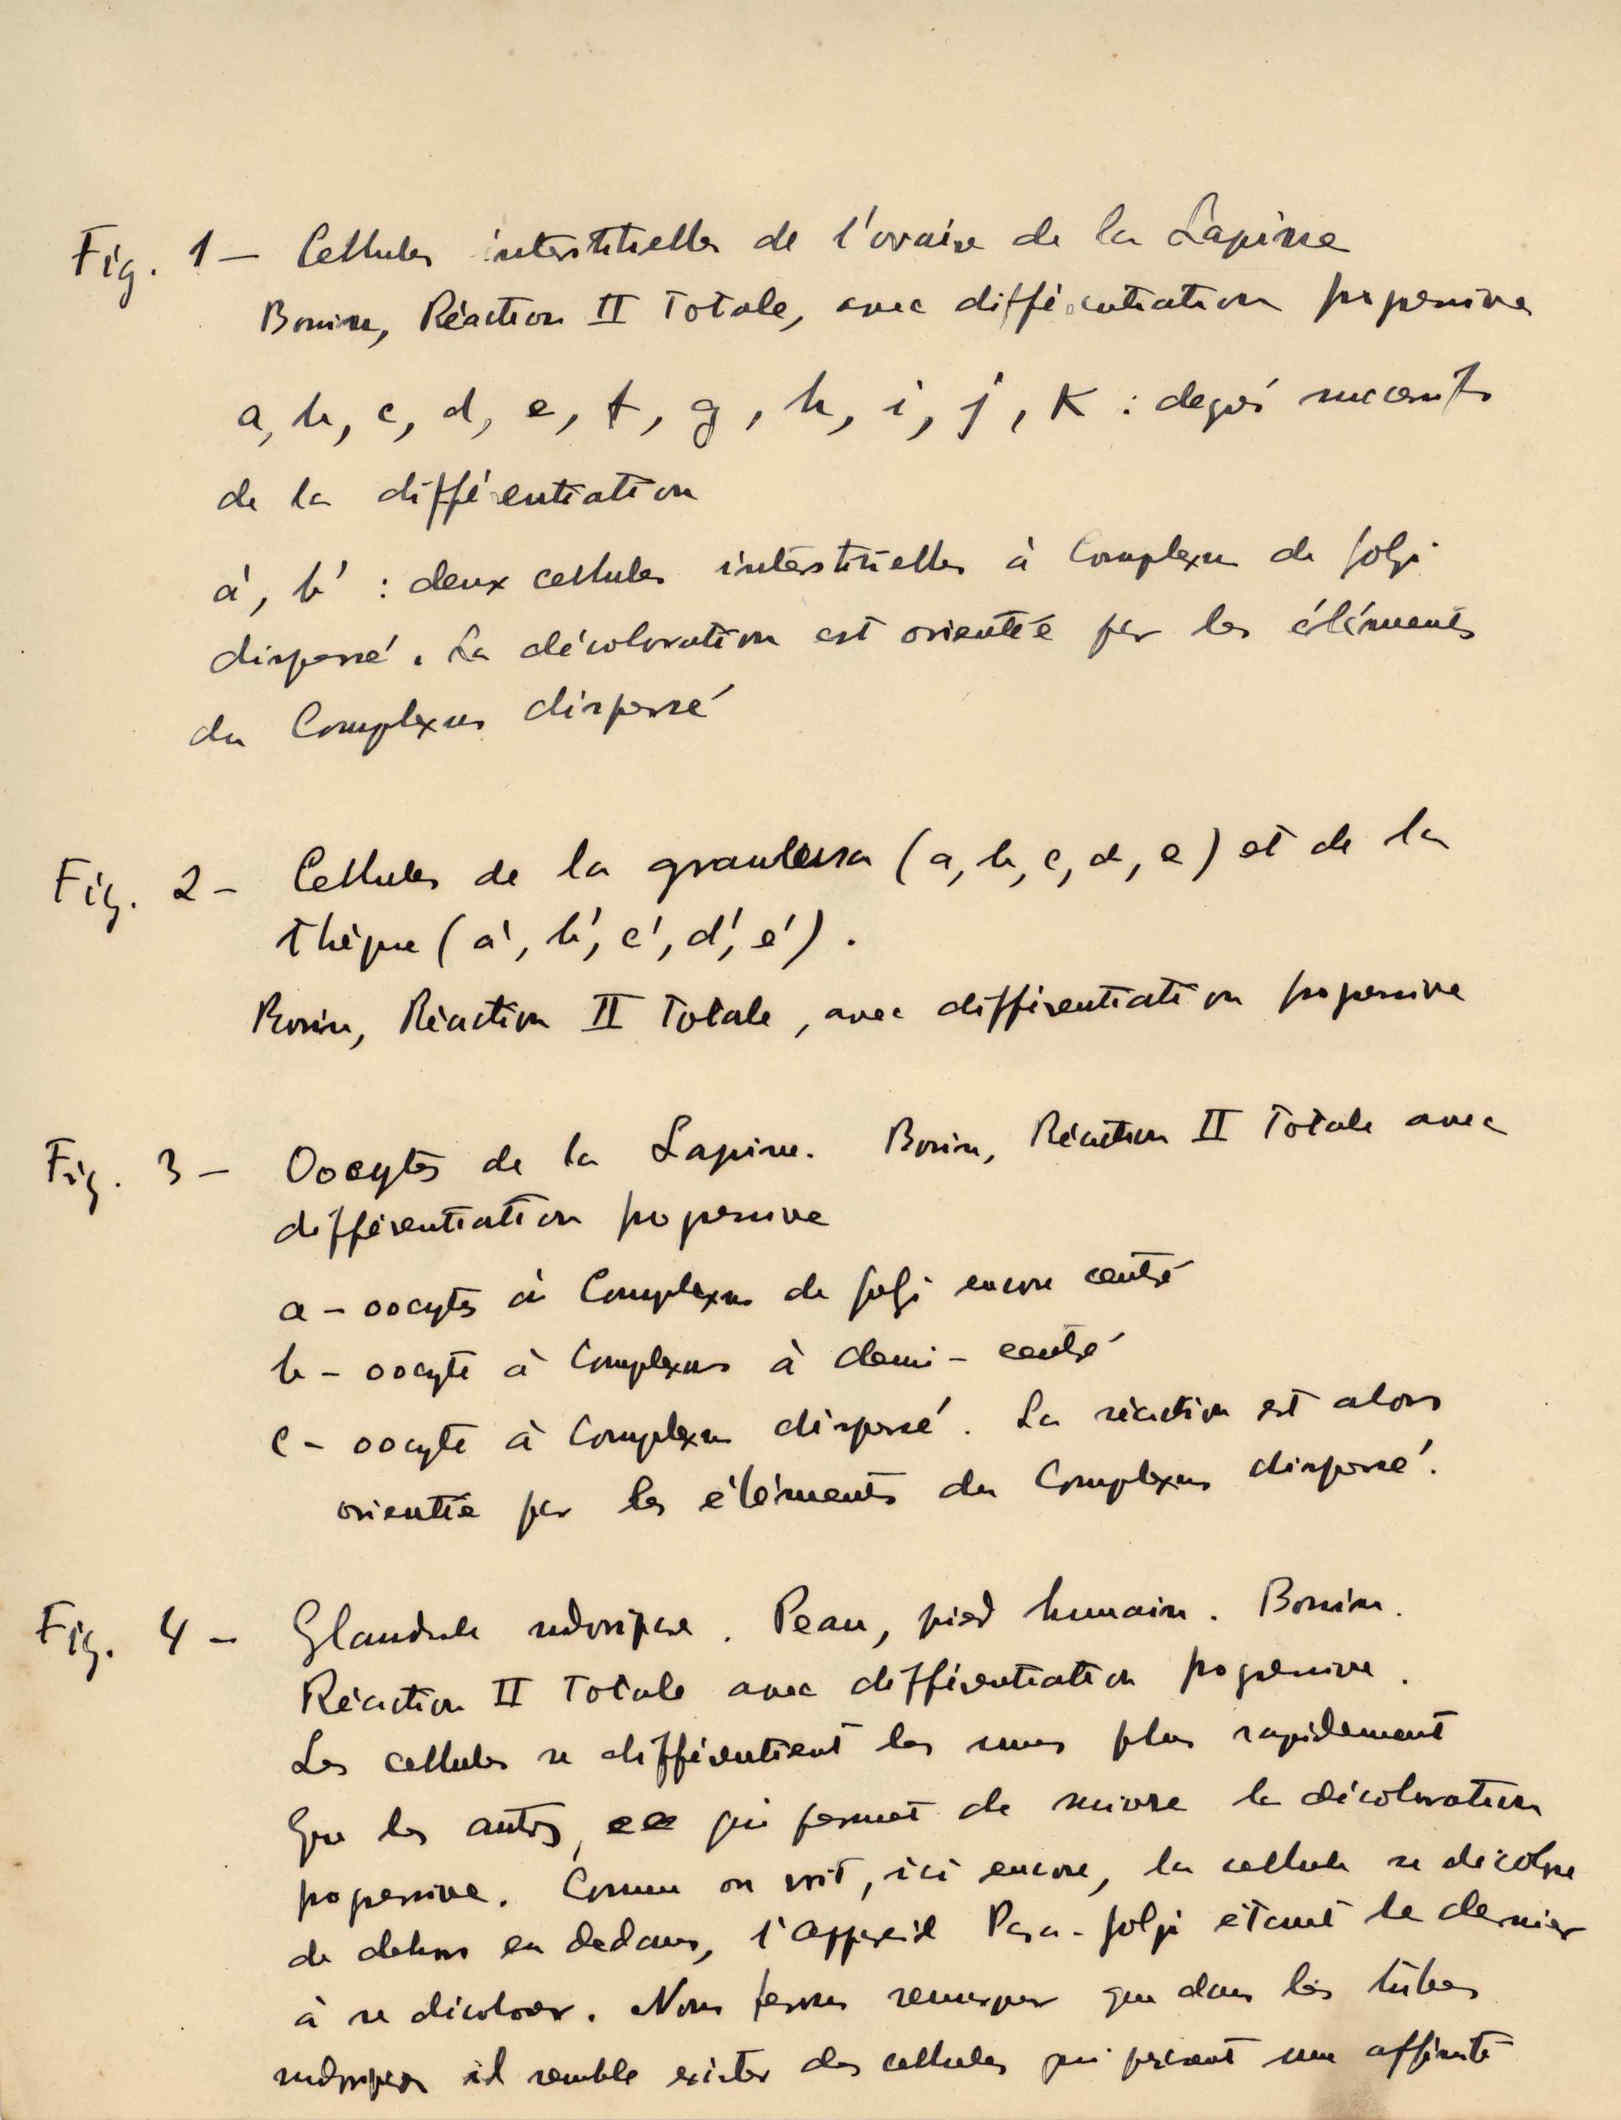 Fig. 1 – Cellules interstitielles de l'ovaire de la Lapine
Bouin, Réaction II Totale, avec différentiation progressive
a, b, c, d, e, f, g, h, i, j, K : degrés successifs
de la différentiation
a', b' : deux cellules interstitielles à Complexus de Golgi
dispersé. La décoloration est orientée par les éléments
du Complexus dispersé
Fig. 2 – Cellules de la granulosa (a, b, c, d, e) et de la
thèque (a', b', c', d', e').
Bouin, Réaction II Totale, avec différentiation progressive
Fig. 3 – Oocytes de la Lapine. Bouin, Réaction II Totale avec
différentiation progressive
a – oocytes à Complexus de Golgi encore centré
b – oocyte à Complexus à demi-centré
c – oocyte à Complexus dispersé. La réaction est alors
orientée par les éléments du Complexus dispersé.
Fig. 4 – Glandule sudoripare. Peau, pied humain. Bouin.
Réaction II Totale avec différentiation progressive.
Les cellules se différentient les unes plus rapidement
que les autres, ce qui permet de suivre la décoloration
progressive. Comme on voit, ici encore, la cellule se décolore
de dehors en dedans, l'appareil Para-Golgi étant le dernier
à se décolorer. Nous ferons remarquer que dans les tubes
sudoripares il semble exister des cellules qui une affinité